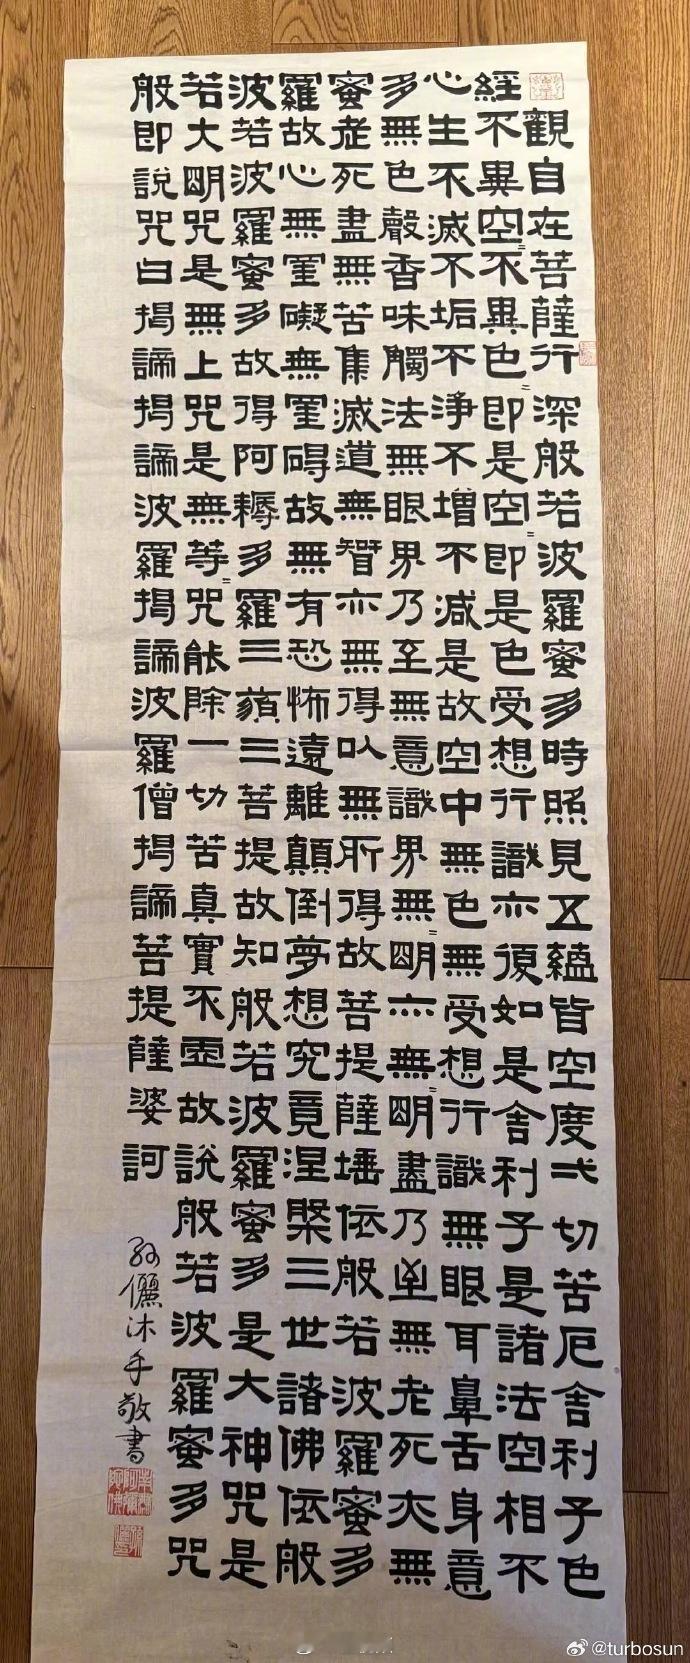 般若波羅蜜多心經
觀自在菩薩行深般若波羅蜜多時照見五蘊皆空度一切苦厄舍利子色
不異空〻不異色〻即是空〻即是色受想行識亦復如是舍利子是諸法空相不
生不滅不垢不淨不增不減是故空中無色無受想行識無眼耳鼻舌身意
無色聲香味觸法無眼界乃至無意識界無〻明亦無〻明盡乃至無老死亦無
老死盡無苦集滅道無智亦無得以無所得故菩提薩埵依般若波羅蜜多
故心無罣礙無罣碍故無有恐怖遠離顛倒夢想究竟涅槃三世諸佛依般
若波羅蜜多故得阿耨多羅三藐三菩提故知般若波羅蜜多是大神咒是
大明咒是無上咒是無等〻咒能除一切苦真實不虛故說般若波羅蜜多咒
即說咒曰揭諦揭諦波羅揭諦波羅僧揭諦菩提薩婆訶
孙儷沐手敬書
南無阿彌陀佛
@turbosun